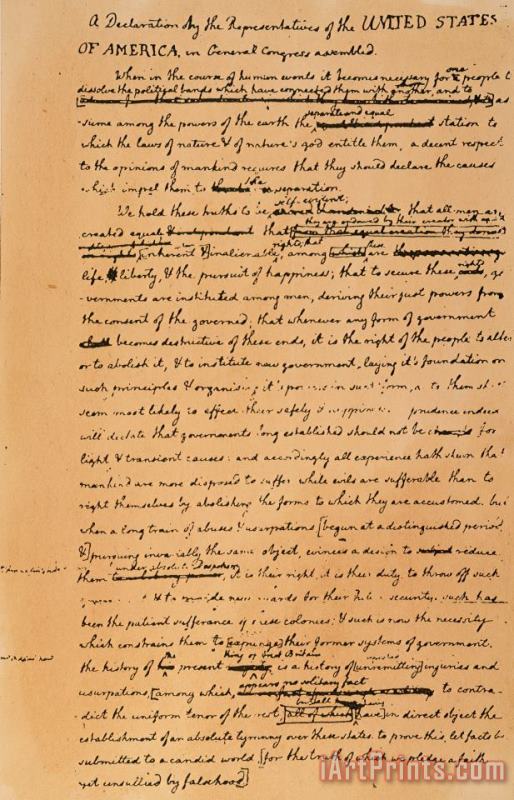 A Declaration by the Representatives of the UNITED STATES
OF AMERICA, in General Congress assembled.
When in the course of human events it becomes necessary for one people to
dissolve the political bands which have connected them with another, and to
as
-sume among the powers of the earth the separate and equal station to
which the laws of nature & of nature's god entitle them, a decent respect
to the opinions of mankind requires that they should declare the causes
which impel them to the separation.
We hold these truths to be self-evident; that all men are
created equal that they are endowed by their creator with
rights; that
inherent & inalienable among these are
life, liberty, & the pursuit of happiness; that to secure these rights, go
-vernments are instituted among men, deriving their just powers from
the consent of the governed; that whenever any form of government
becomes destructive of these ends, it is the right of the people to alter
or to abolish it, & to institute new government, laying it's foundation on
such principles & organising it's powers in such form, as to them shall
seem most likely to effect their safety & happiness. prudence indeed
will dictate that governments long established should not be for
light & transient causes: and accordingly all experience hath shewn that
mankind are more disposed to suffer while evils are sufferable than to
right themselves by abolishing the forms to which they are accustomed. but
when a long train of abuses & usurpations [begun at a distinguished period
&] pursuing invariably the same object, evinces a design to reduce
them under absolute Despotism, it is their right, it is their duty, to throw off such
& to provide new guards for their future security. such has
been the patient sufferance of these colonies; & such is now the necessity
which constrains them to [expunge] their former systems of government.
the history of the present King of Great Britain is a history of [unremitting] injuries and
usurpations, [among which, appears no solitary fact to contra-
dict the uniform tenor of the rest, but all have in direct object the
establishment of an absolute tyranny over these states. to prove this, let facts be
submitted to a candid world, [for the truth of which we pledge a faith
yet unsullied by falsehood]
iArtPrints.com